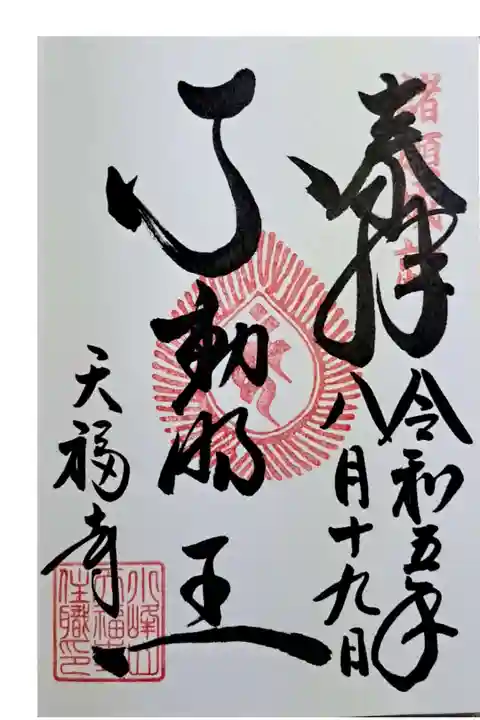 諸願成就
奉拝
令和五年
八月十九日
不動明王
天福寺
小峰山
天福寺
住職印